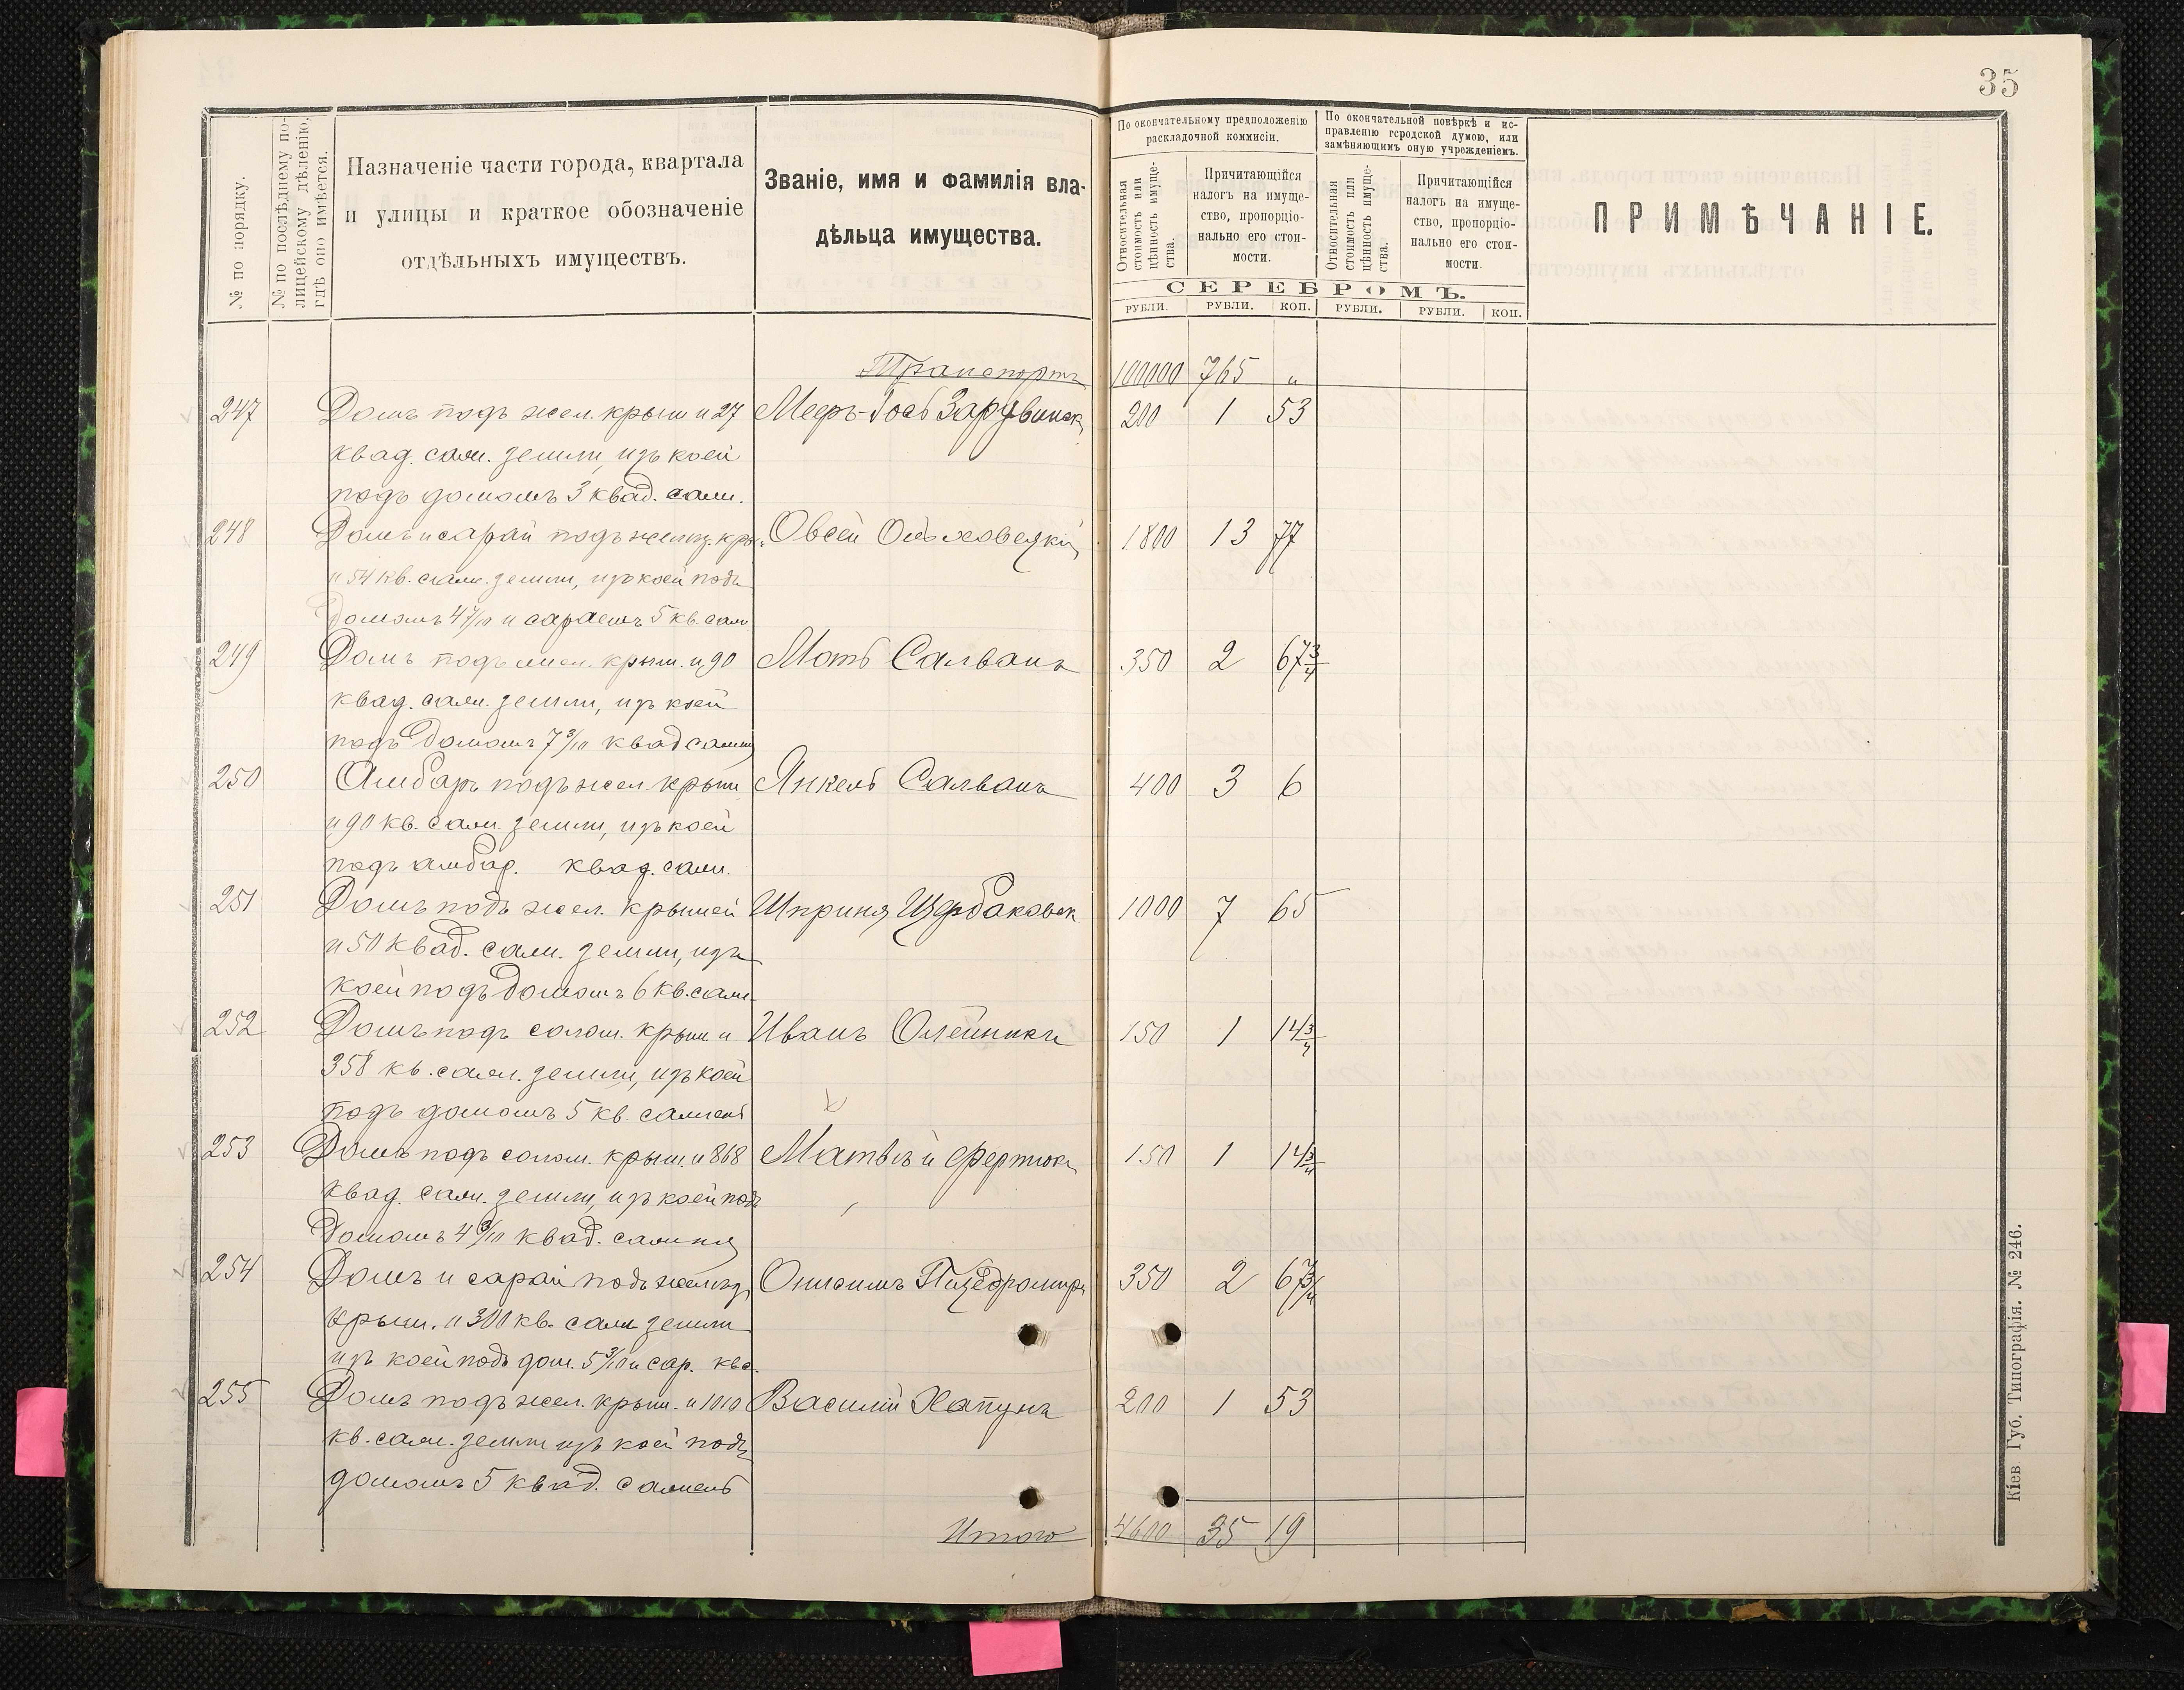 35
№ по порядку.
№ по послѣднему по-
лицейскому дѣленію,
гдѣ оно имѣется.
Назначеніе части города, квартала
и улицы и краткое обозначеніе
отдѣльныхъ имуществъ.
Званіе, имя и фамилія вла-
дѣльца имущества.
По окончательному предположенію
раскладочной коммисіи.
Относительная
стоимость или
цѣнность имуще-
ства.
Причитающійся
налогъ на имуще-
ство, пропорціо-
нально его стои-
мости.
По окончательной повѣркѣ и ис-
правленію городской думою, или
замѣняющимъ оную учрежденіемъ.
Относительная
стоимость или
цѣнность имуще-
ства.
Причитающійся
налогъ на имуще-
ство, пропорціо-
нально его стои-
мости.
СЕРЕБРОМЪ.
РУБЛИ. РУБЛИ. КОП. РУБЛИ. РУБЛИ. КОП.
ПРИМѢЧАНІЕ.
Транспортъ 100000 765 "
247 Домъ подъ жел. крыш и 27 Мееръ- 200 1 53
квад. саж. земли, изъ коей
подъ домомъ 3 квад. саж.
248 Домъ и сарай подъ желѣз. кры- Овсей 1800 13 77
и 54 кв. саж. земли, изъ коей подъ
домомъ 4 7/10 и сараемъ 5 кв саж
249 Домъ подъ жел. крыш. и 90 Мотъ Салванъ 350 2 67 3/4
квад. саж. земли, изъ коей
подъ домомъ 7 3/10 квад сажен
250 Амбаръ подъ жел крыш Янкель Салванъ 400 3 6
и 90 кв. саж. земли, изъ коей
подъ амбар. квад. саж.
251 Домъ подъ жел. крышей Щербаковск 1000 7 65
и 50 квад. саж. земли, изъ
коей подъ домомъ 6 кв. саж
252 Домъ подъ солом. крыш. и Иванъ Олейникъ 150 1 14 3/4
358 кв. саж. земли, изъ коей
подъ домомъ 5 кв. сажень
253 Домъ подъ солом. крыш. и 868 Матвѣй Фертюкъ 150 1 14 3/4
квад. саж. земли, изъ коей подъ
домомъ 4 3/10 квад. сажня
254 Домъ и сарай подъ желѣз Онисимъ 350 2 67 3/4
крыш. и 300 кв. саж земли
изъ коей подъ дом. 5 3/10 и сар. ква
255 Домъ подъ жел. крыш. и 1010 Василій Хапунъ 200 1 53
кв. саж. земли изъ коей подъ
домомъ 5 квад. сажень
Итого 4600 35 19
Кіев. Губ. Типографія. № 246.